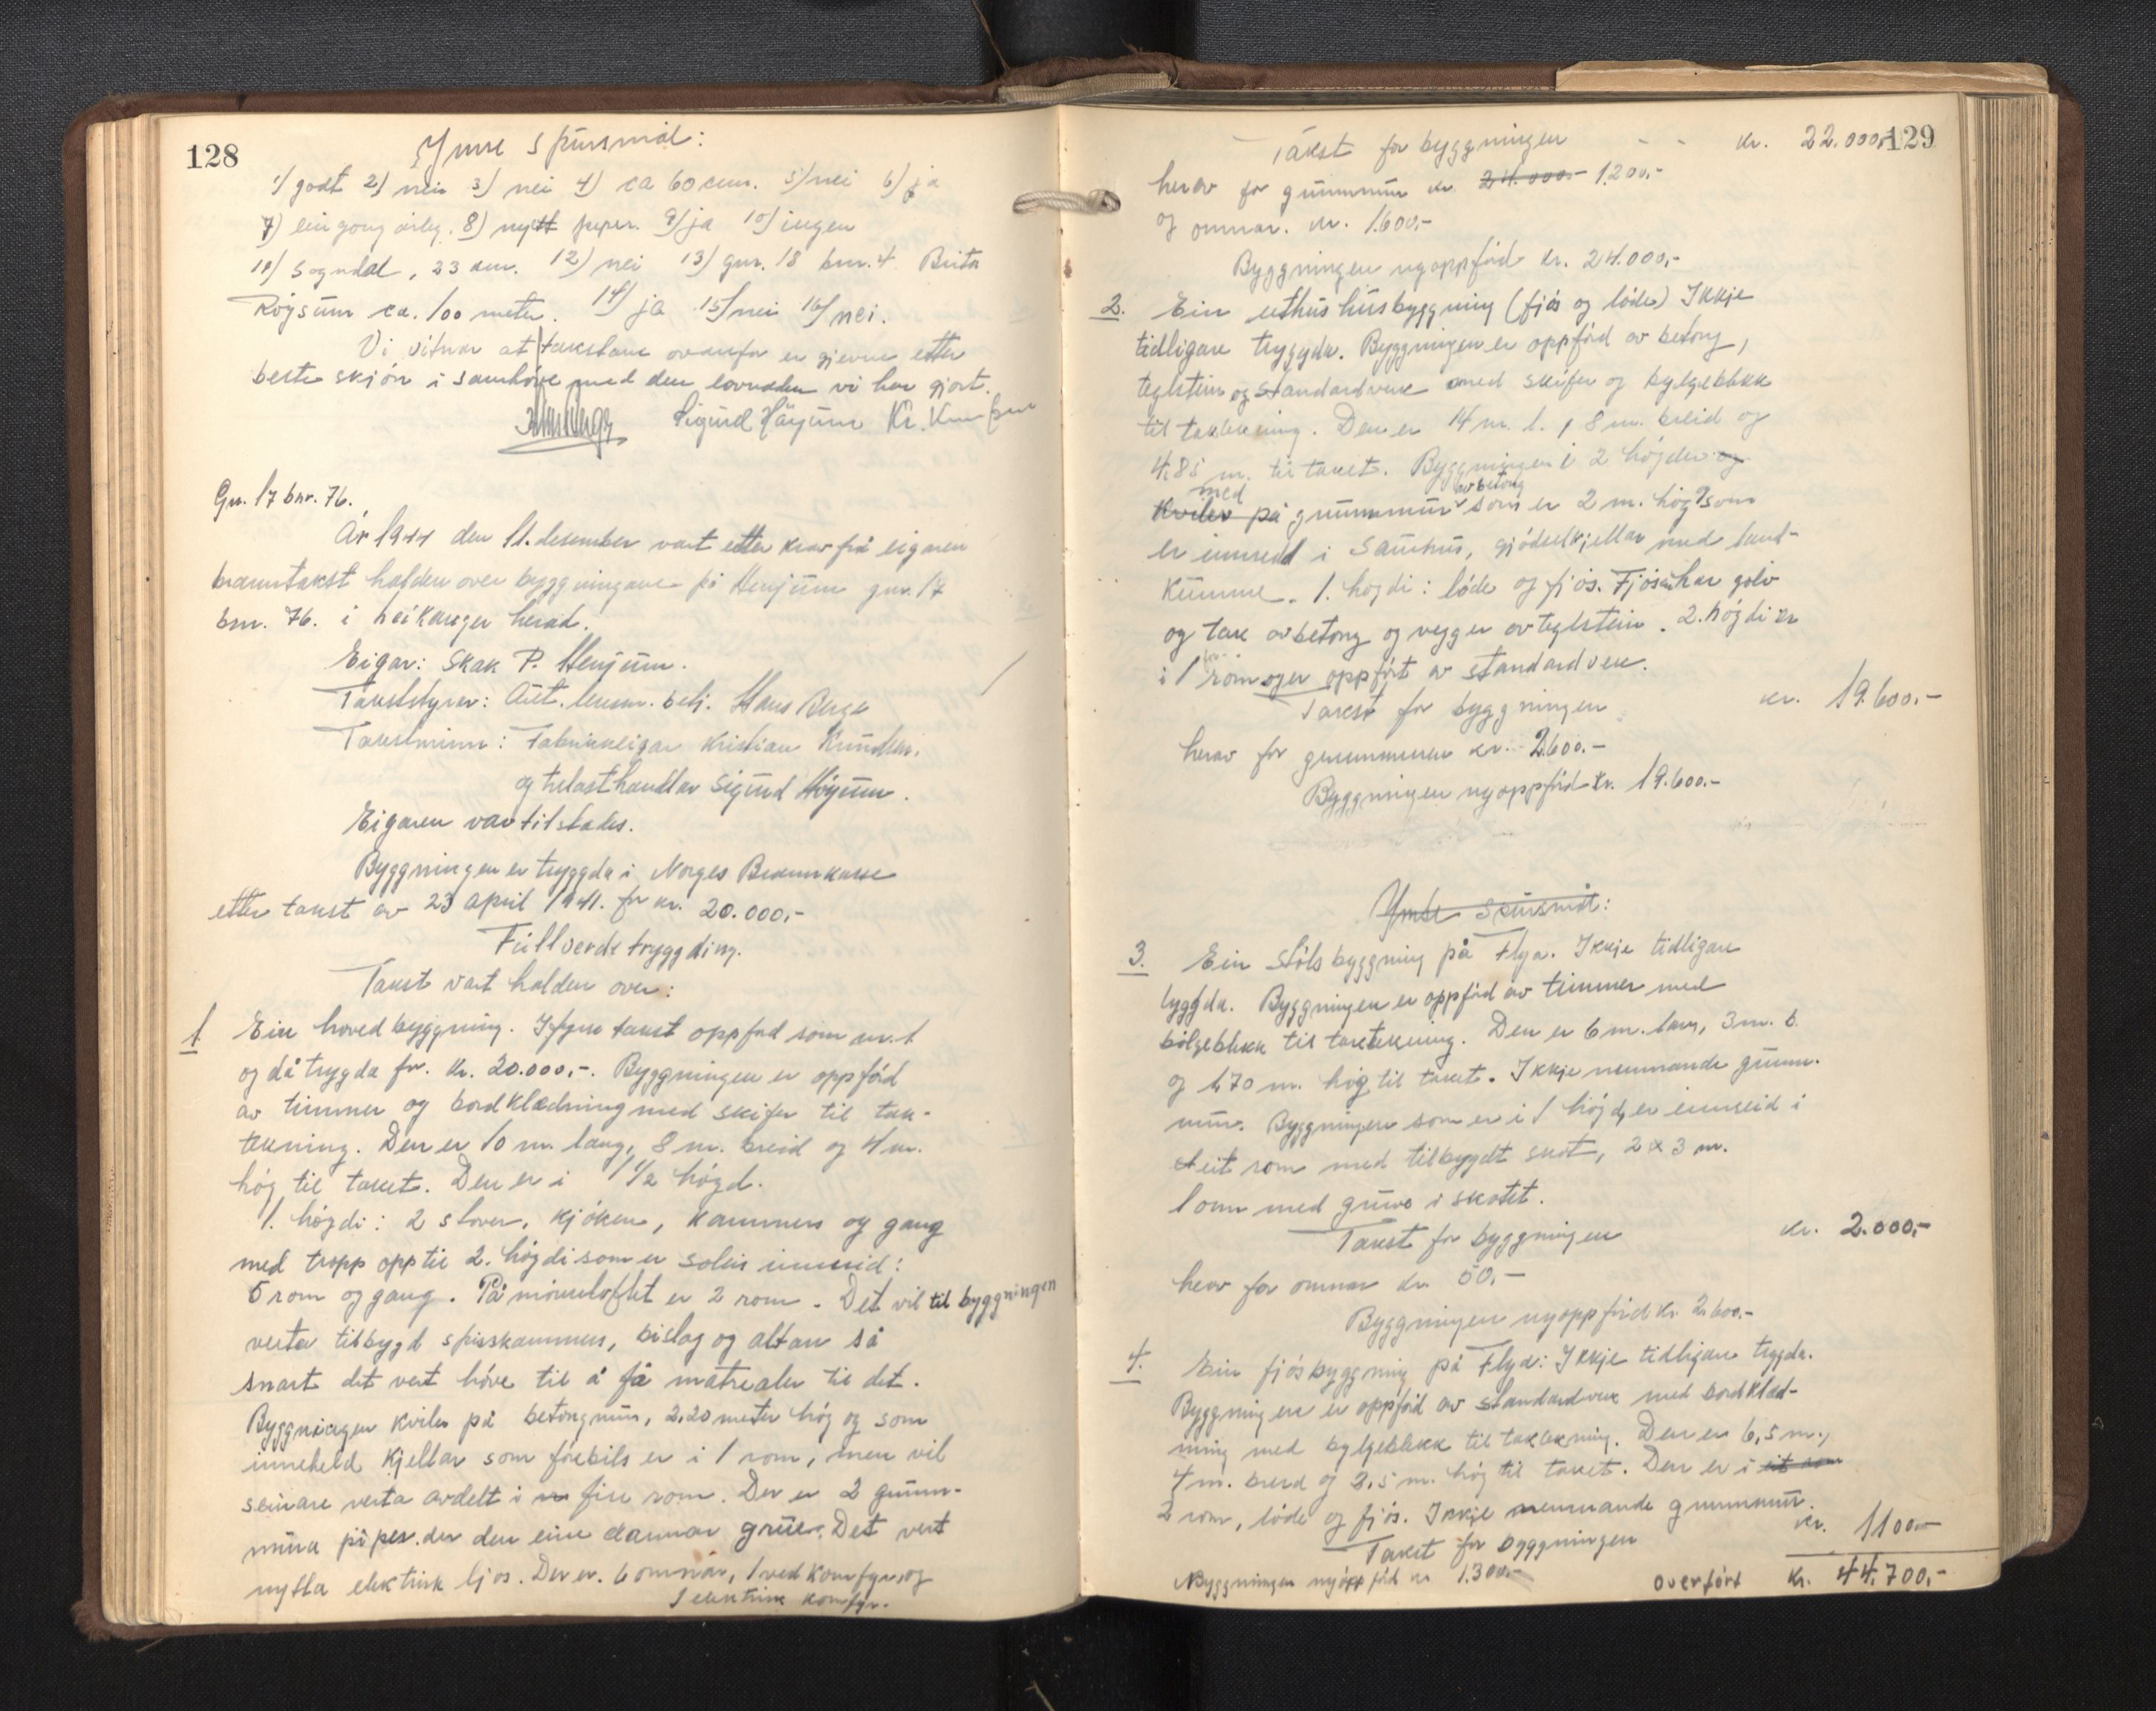 128
Ymse spursmål:
1) godt 2) nei 3) nei 4) ca 60 cm. 5) nei 6) ja
7) ein gong årleg. 8) nytt 9) ja 10) ingen
11) Sogndal, 23 km. 12) nei 13) gnr. 18 bnr. 4 Brita
Røysum ca. 100 meter. 14) ja 15) nei 16) nei.
Vi vitnar at takstane ovanfor er gjevne etter
beste skjøn i samhøve med den lovnaden vi har gjort.
Hans Berge Sigurd Høyum Kr. Knudsen
Gn. 17 bnr. 76.
År 1944 den 11. desember vart etter krav frå eigaren
branntakst halden over byggningane på Henjum gnr. 17
bnr. 76. i Leikanger herad.
Eigar: Skak P. Henjum.
Takststyrer: Aut. lensm. betj. Hans Berge
Takstmenn: Fabrikkeigar Kristian Knudsen.
og trelasthandlar Sigurd Høyum.
Eigaren var tilstades.
Byggningen er tryggda i Norges Brannkasse
etter takst av 23 april 1941. for kr. 20.000,-
Fullverdi tryggding.
Takst vart halden over:
1. Ein hovedbyggning. I fyrre takst oppförd som nr. 1
og då trygda for. kr. 20.000,-. Byggningen er oppförd
av timmer og bordklædning med skifer til tak-
tekning. Den er 10 m. lang, 8 m. breid og 4 m.
høg til taket. Den er i 1 1/2 høgd.
1. høgdi: 2 stover, kjöken, kammers og gang
med tropp opp til 2. høgdi som er soleis innreid:
5 rom og gang. På mörseloftet er 2 rom. Det vil til byggningen
verta tilbygd spisskammers, bislag og altan så
snart det vert höve til å få matrealer til det.
Byggningen kviler på betongmur, 2,20 meter høg og som
inneheld kjellar som förebils er i 1 rom, men vil
seinare verta avdelt i fire rom. Der er 2 grunn-
mura piper. der den eine dannar grue. Det vert
nytta elektrisk ljos. Der er. 6 omnar, 1 vedkomfyr og
1 elektrisk komfyr.
129
Takst for byggningen - - kr. 22.000,-
herav for grunnmur kr. 24.000.- 1.200,-
og omnar. kr. 1.600,-
Byggningen nyoppförd kr. 24.000,-
2. Ein uthushusbyggning (fjös og löde) Ikkje
tidligare tryggda. Byggningen er oppförd av betong,
teglstein og standardverk med skifer og bylgeblikk
til taktekning. Den er 14 m. l., 8 m. breid og
4,85 m. til taket. Byggningen i 2 høgder og
med av betong
kviler på grunnmur som er 2 m. høg som
er innredd i sauhus, gjödselkjellar med land-
kumme. 1. høgdi: löde og fjös. Fjösen har golv
og tak av betong og vegger av teglstein. 2. høgdi er
i 1 rom og er oppfört av standardverk.
Takst for byggningen kr. 19.600,-
herav for grunnmuren kr. 2.600.-
Byggningen nyoppförd kr. 19.600.-
Ymse spursmål:
3. Ein stöls byggning på Flya. Ikkje tidligare
tryggda. Byggningen er oppförd av timmer med
bölgeblikk til taktekning. Den er 6 m. lang, 3 m. b.
og 1,70 m. høg til taket. Ikkje nemnande grunn-
mur. Byggningen som er i 1 høgd, er innreid i
eit rom med tilbygdt skot, 2 x 3 m.
1 omn med gruve i skotet.
Takst for byggningen kr. 2.000,-
herav for omnar kr. 50,-
Byggningen nyoppförd kr. 2.600.-
4. Ein fjösbyggning på Flya: Ikkje tidligare trygda.
Byggningen er oppförd av standardverk med bordklæd-
ning med bylgeblikk til taktekning. Den er 6,5 m.,
4 m. breid og 2,5 m. høg til taket. Den er i eit rom
2 rom, löde og fjös. Ikkje nemnande grunnmur.
Takst for byggningen kr. 1100,-
Byggningen nyoppförd kr 1.300.- overfört kr. 44.700,-